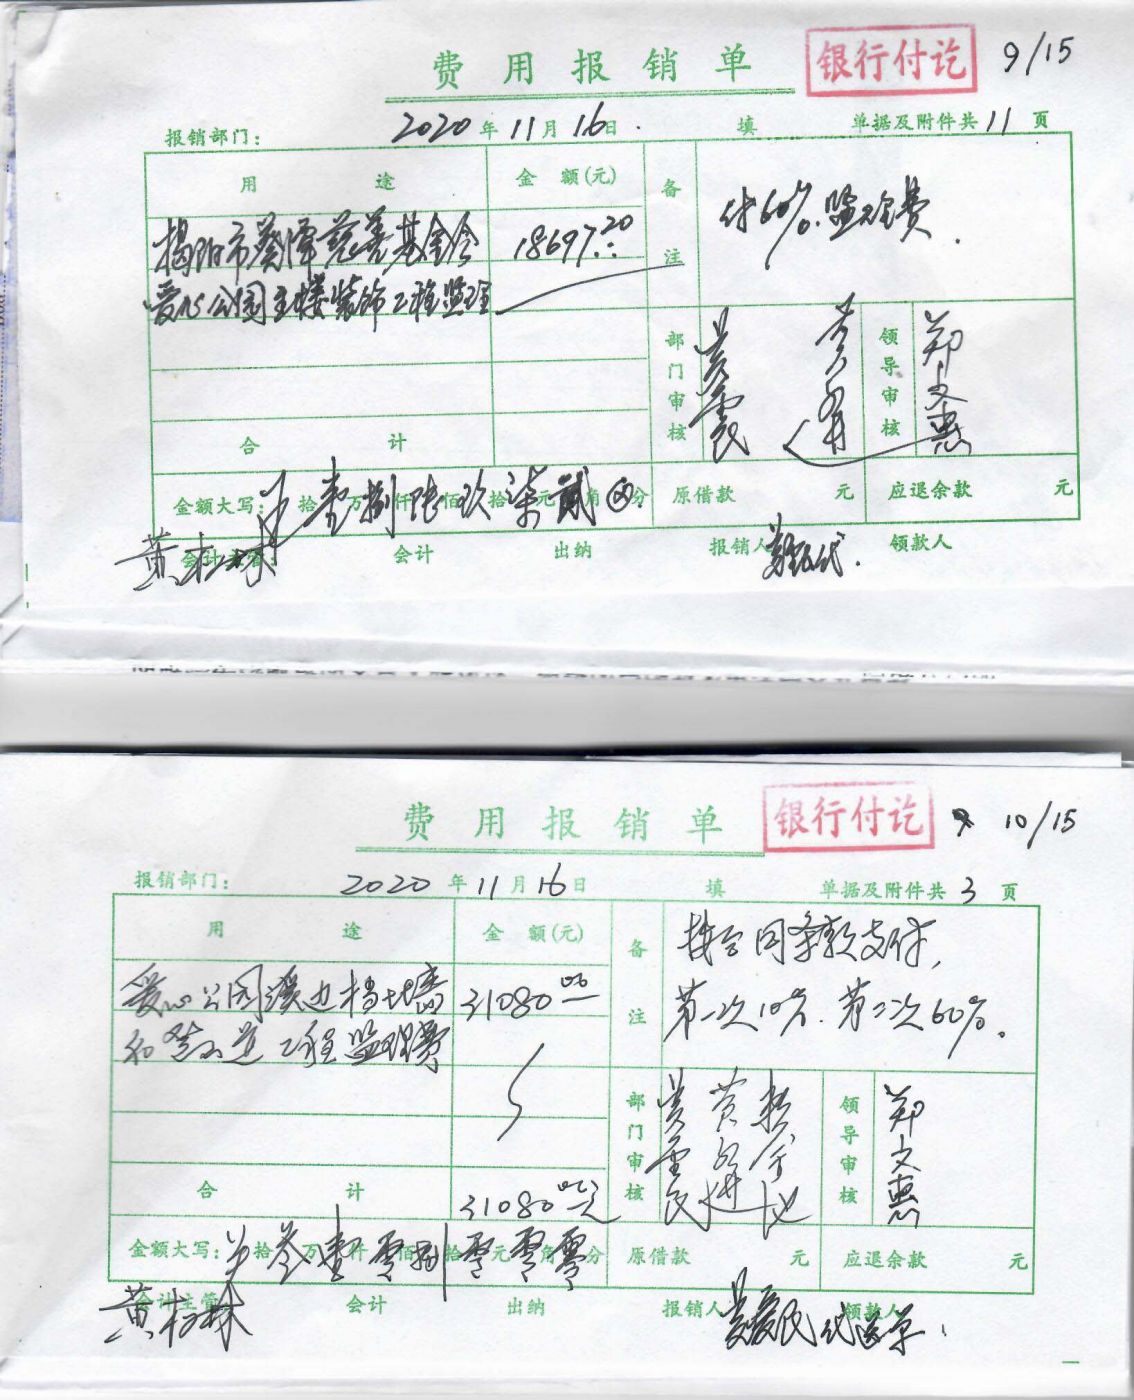 费用报销单 银行付讫 9/15
报销部门： 2020年11月16日. 填 单据及附件共11页
用途 金额(元) 备注
揭阳市葵潭慈善基金会 18697.20 付60%监理费.
爱心公园主楼装饰工程监理
部门审核 领导审核 郑文惠
合计
金额大写： 拾壹万捌仟陆佰玖拾柒元贰角⊗分 原借款 元 应退余款 元
会计主管： 黄松林 会计 出纳 报销人 领款人
费用报销单 银行付讫 10/15
报销部门： 2020年11月16日 填 单据及附件共3页
用途 金额(元) 备注 按合同条款支付,
爱心公园溪边挡土墙 31080.00 第一次10%.第二次60%.
和登山道工程监理费
部门审核 领导审核 郑文惠
合计 31080.00元
金额大写： 拾叁万壹仟零佰捌拾零元零角零分 原借款 元 应退余款 元
会计主管 黄松林 会计 出纳 报销人 领款人